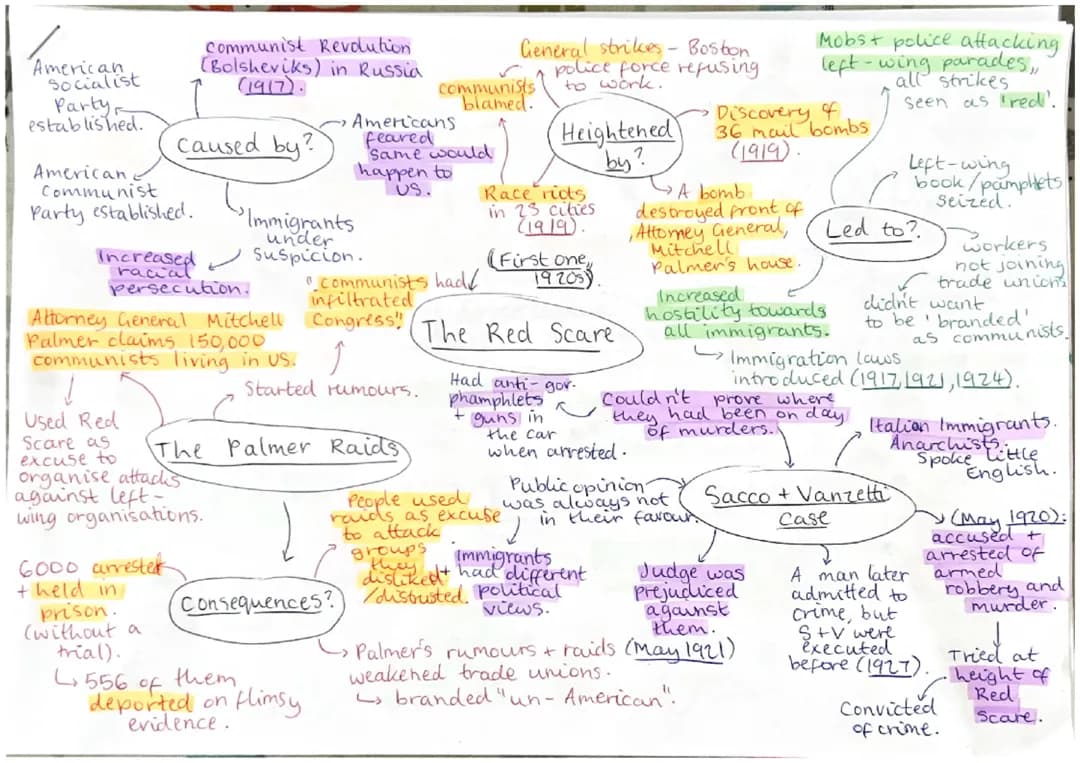 Communist Revolution
(Bolsheviks) in Russia
(1917).
American
socialist
Party
established.
Caused by?
Americans
feared
same would
happen to
US.
American
Communist
Party established.
Immigrants
under
suspicion.
Increased
racial
persecution.
General strikes - Boston
police force refusing
to work.
communists
blamed.
Heightened
by?
Discovery of
36 mail bombs
(1919).
Race riots
in 23 cities
(1919).
A bomb
destroyed front of
Attorney General,
Mitchell
Palmer's house.
Mobs + police attacking
left-wing parades,,
all strikes
seen as 'red'.
Left-wing
book/pamphlets
seized.
Led to?
workers
not joining
trade unions
didn't want
to be 'branded'
as communists.
Increased
hostility towards
all immigrants.
Immigration laws
introduced (1917,1921,1924).
(First one,,
1920s).
The Red Scare
"communists had
infiltrated
Congress".
Attorney General Mitchell
Palmer claims 150,000
communists living in US.
Started rumours.
Used Red
Scare as
excuse to
organise attacks
against left-
wing organisations.
The Palmer Raids
Consequences?
People used
raids as excuse
to attack
groups
they
disliked
/distrusted.
6000 arrested
+ held in
prison.
(without a
trial).
556 of them
deported on flimsy
evidence.
Palmer's rumours + raids
weakened trade unions.
branded "un-American".
Had anti-gov.
phamphlets
+ guns in
the car
when arrested.
Couldn't prove where
they had been on day
of murders.
Italian Immigrants.
Anarchists.
Spoke little
English.
Sacco + Vanzetti
case
Public opinion
was always not
in their favour.
Immigrants
+ had different
political
views.
Judge was
prejudiced
against
them.
(May 1921)
A man later
admitted to
crime, but
S+V were
executed
before (1927).
(May 1920):
accused +
arrested of
armed
robbery and
murder.
Tried at
height of
Red
Scare.
Convicted
of crime.